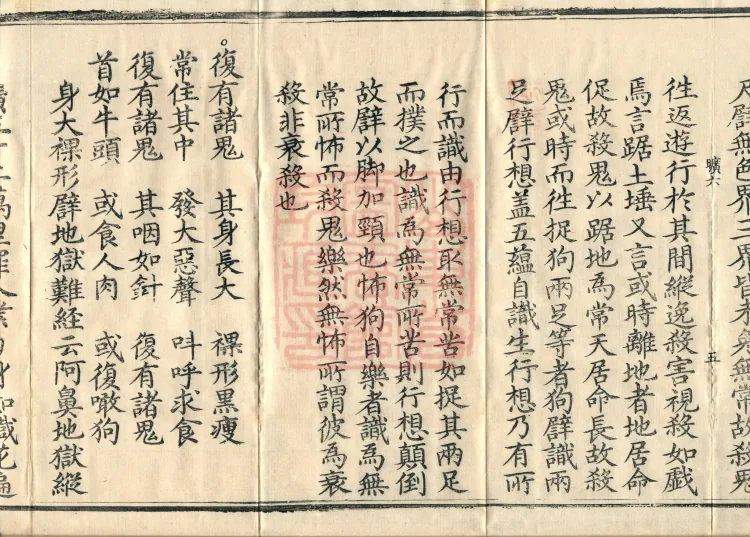 譬無色界三界皆不免無常故殺鬼
曠六　五
徃返遊行於其間縱逸殺害視殺如戲
焉言踞土埵又言或時離地者地居命
促故殺鬼以踞地為常天居命長故殺
鬼或時而徃捉狗兩足等者狗譬識兩
足譬行想盖五蘊自識生行想乃有所
行而識由行想取無常苦如捉其兩足
而撲之也識為無常所苦則行想顛倒
故譬以脚加頸也怖狗自樂者識為無
常所怖而殺鬼樂然無怖所謂彼為衰
殺非衰殺也
。復有諸鬼　其身長大　裸形黑瘦
常住其中　發大惡聲　叫呼求食
復有諸鬼　其咽如針　復有諸鬼
首如牛頭　或食人肉　或復噉狗
身大裸形譬地獄難經云阿鼻地獄縱
萬里罪人業力身如